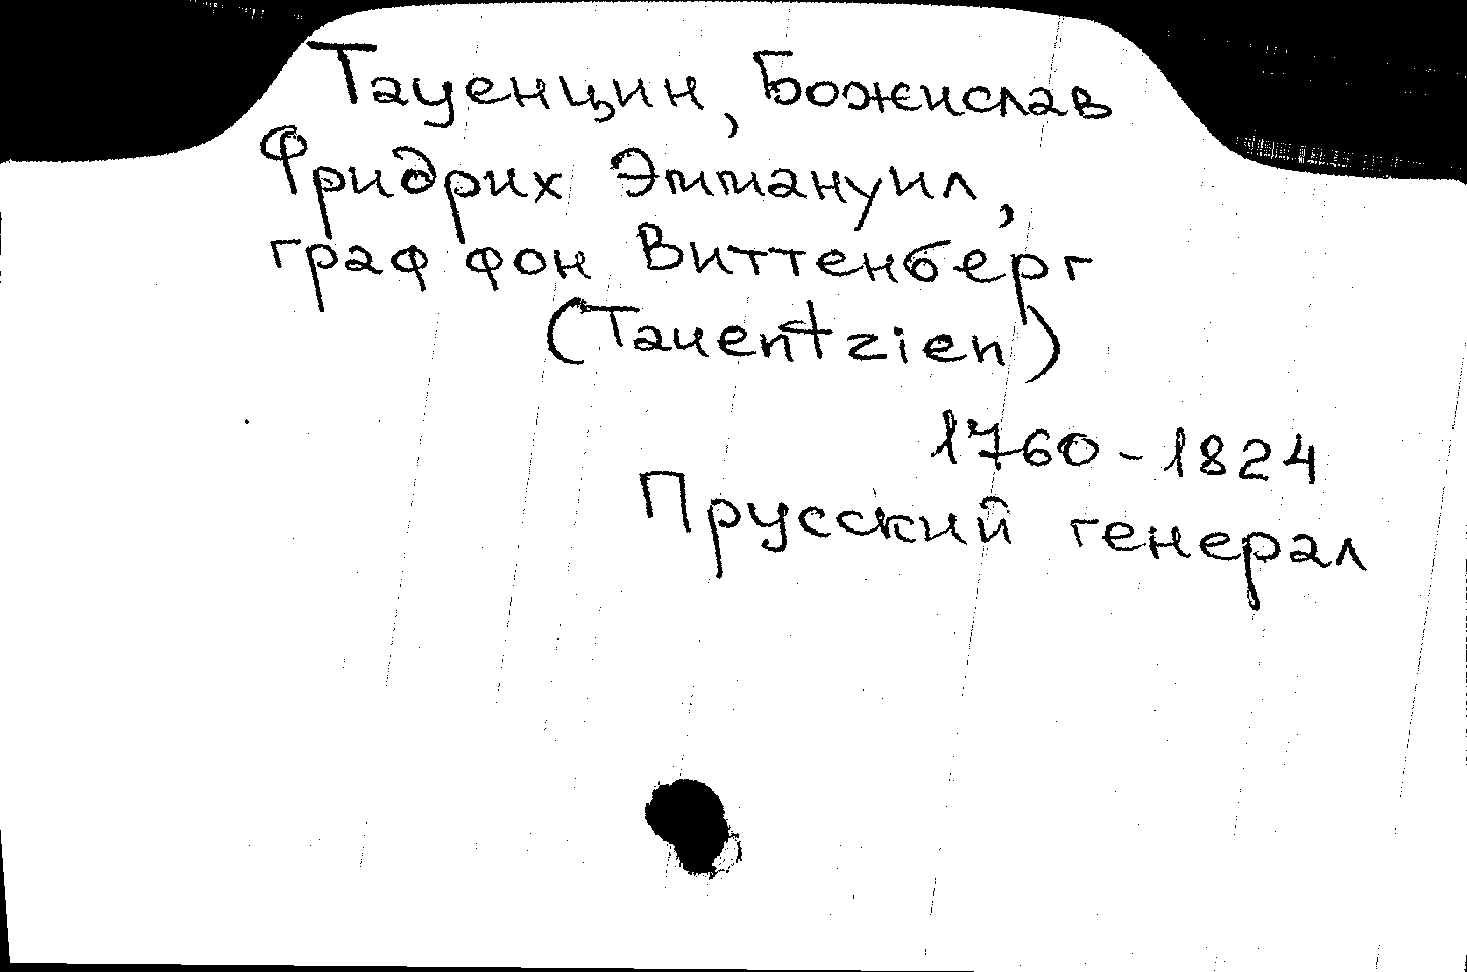 Тауенцин, Божислав
Фридрих Эммануил,
граф фон Виттенберг
(Tauentzien)
1760-1824
Прусский генерал